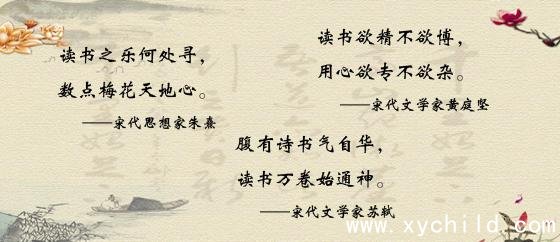 读书之乐何处寻，
数点梅花天地心。
——宋代思想家朱熹
读书欲精不欲博，
用心欲专不欲杂。
——宋代文学家黄庭坚
腹有诗书气自华，
读书万卷始通神。
——宋代文学家苏轼
www.xychild.com